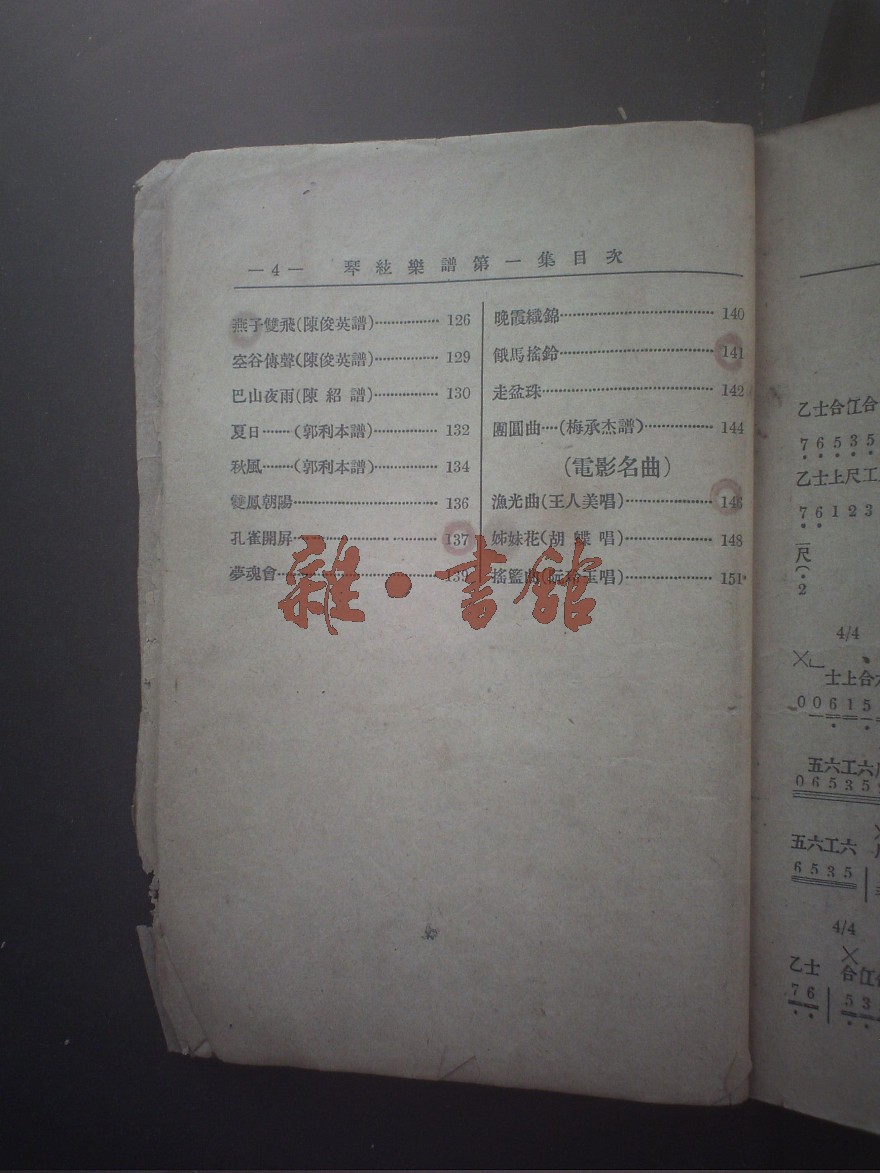 —4— 琴絃樂譜第一集目次
燕子雙飛(陳俊英譜)……………126
空谷傳聲(陳俊英譜)……………129
巴山夜雨(陳紹譜)……………130
夏日……(郭利本譜)……………132
秋風……(郭利本譜)……………134
雙鳳朝陽……………136
孔雀開屏……………137
夢魂會……………139
晚霞織錦……………140
餓馬搖鈴……………141
走盆珠……………142
團圓曲…(梅承杰譜)……………144
(電影名曲)
漁光曲(王人美唱)……………146
姊妹花(胡蝶唱)……………148
搖籃曲(阮玲玉唱)……………151
雜·書館
乙士合仜合
7 6 5 3 5
乙士上尺工
7 6 1 2 3
尺
2
4/4
士上合
0 0 6 1 5
五六工六
0 6 5 3 5
五六工六
6 5 3 5
4/4
乙士 合仜
7 6 5 3